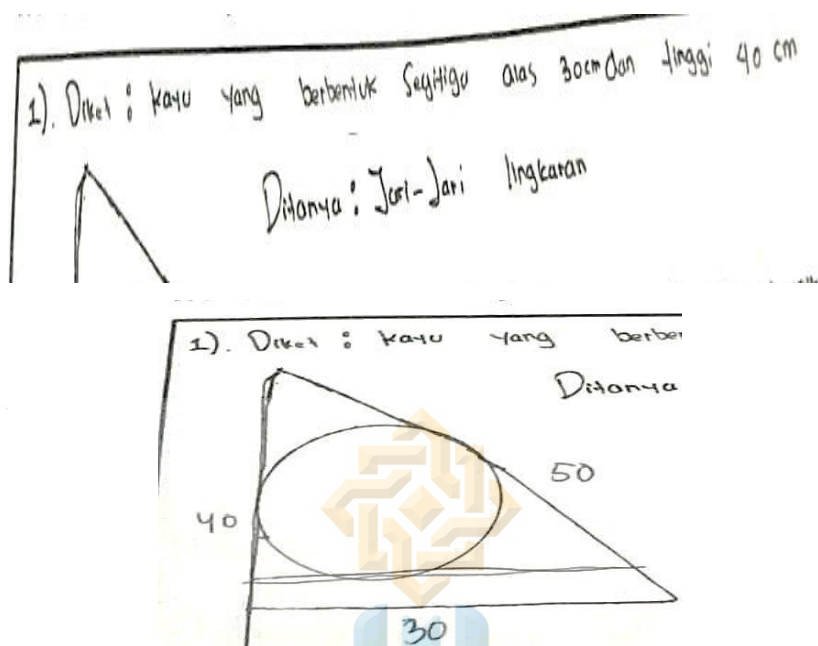 1). Diket : kayu yang berbentuk Segitiga alas 30cm dan tinggi 40 cm
Ditanya : Jari-Jari lingkaran
1). Diket : kayu yang berben
Ditanya
50
40
30